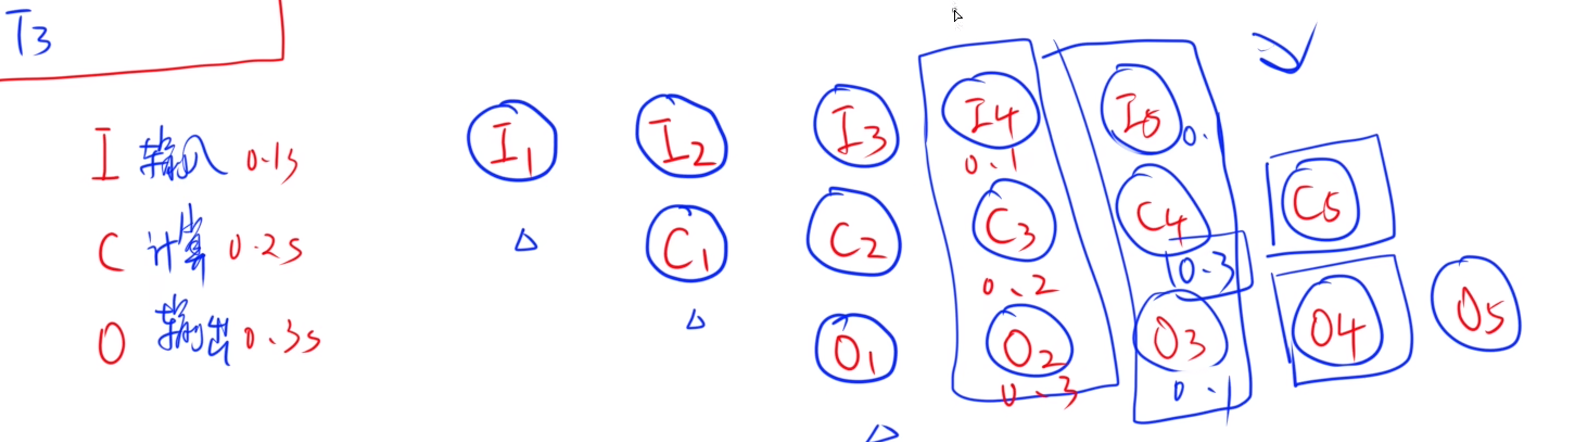 T3
I 输入 0.1s
C 计算 0.2s
O 输出 0.3s
I1 I2 I3 I4 I5
0.1 0.
C1 C2 C3 C4 C5
0.2 0.3
O1 O2 O3 O4 O5
0.3 0.1